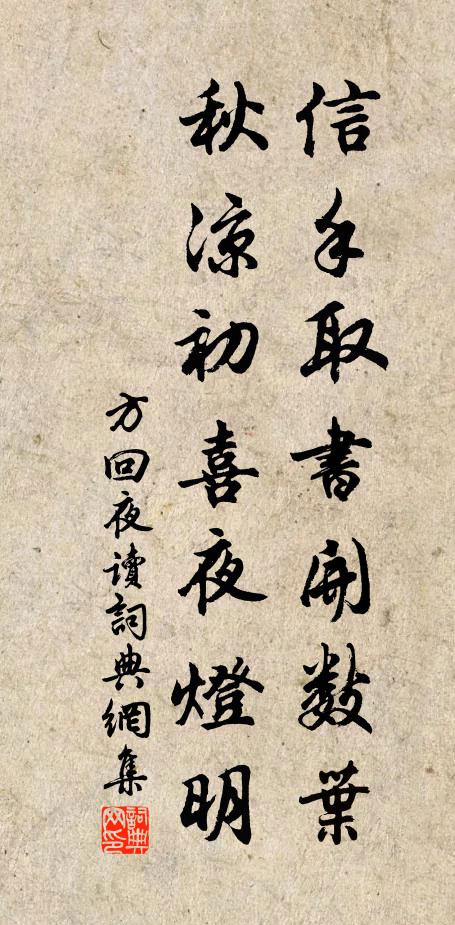 信手取書開數葉
秋涼初喜夜燈明
方回夜讀詞典網集
詞典网印